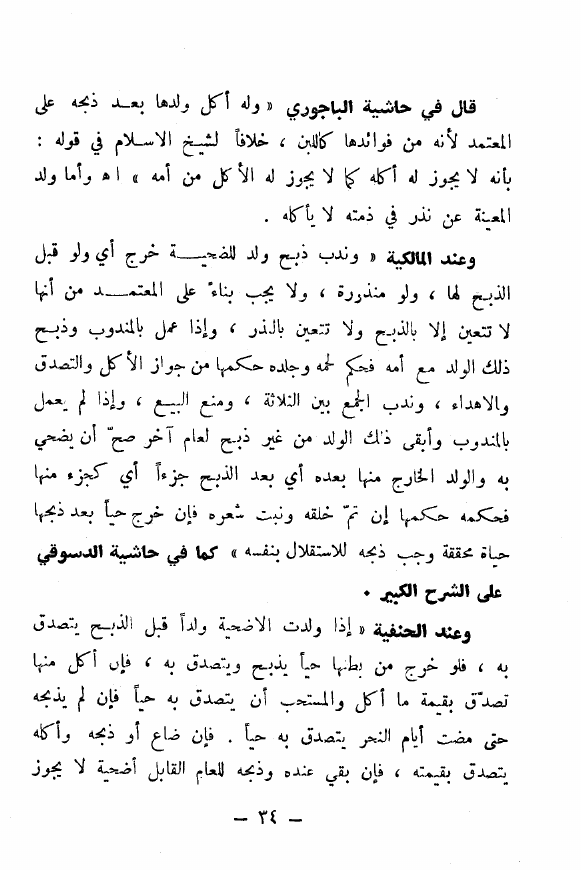 قال في حاشية الباجوري « وله أكل ولدها بعد ذبحه على
المعتمد لأنه من فوائدها كاللبن ، خلافاً لشيخ الاسلام في قوله :
بأنه لا يجوز له أكله كما لا يجوز له الأكل من أمه » اه وأما ولد
المعينة عن نذر في ذمته لا يأكله .
وعند المالكية « وندب ذبح ولد للضحية خرج أي ولو قبل
الذبح لها ، ولو منذررة ، ولا يجب بناءً على المعتمد من أنها
لا تتعين إلا بالذبح ولا تتعين بالنذر ، وإذا عمل بالمندوب وذبح
ذلك الولد مع أمه فحكم لحمه وجلده حكمها من جواز الأكل والتصدق
والاهداء ، وندب الجمع بين الثلاثة ، ومنع البيع ، وإذا لم يعمل
بالمندوب وأبقى ذلك الولد من غير ذبح لعام آخر صحّ أن يضحي
به والولد الخارج منها بعده أي بعد الذبح جزءاً أي كجزء منها
فحكمه حكمها إن تمّ خلقه ونبت شعره فإن خرج حياً بعد ذبحها
حياة محققة وجب ذبحه للاستقلال بنفسه » كما في حاشية الدسوقي
على الشرح الكبير .
وعند الحنفية « إذا ولدت الاضحية ولداً قبل الذبح يتصدق
به ، فلو خرج من بطنها حياً يذبح ويتصدق به ، فإن أكل منها
تصدّق بقيمة ما أكل والمستحب أن يتصدق به حياً فإن لم يذبحه
حتى مضت أيام النحر يتصدق به حياً . فإن ضاع أو ذبحه وأكله
يتصدق بقيمته ، فإن بقي عنده وذبحه للعام القابل أضحية لا يجوز
– ٣٤ –